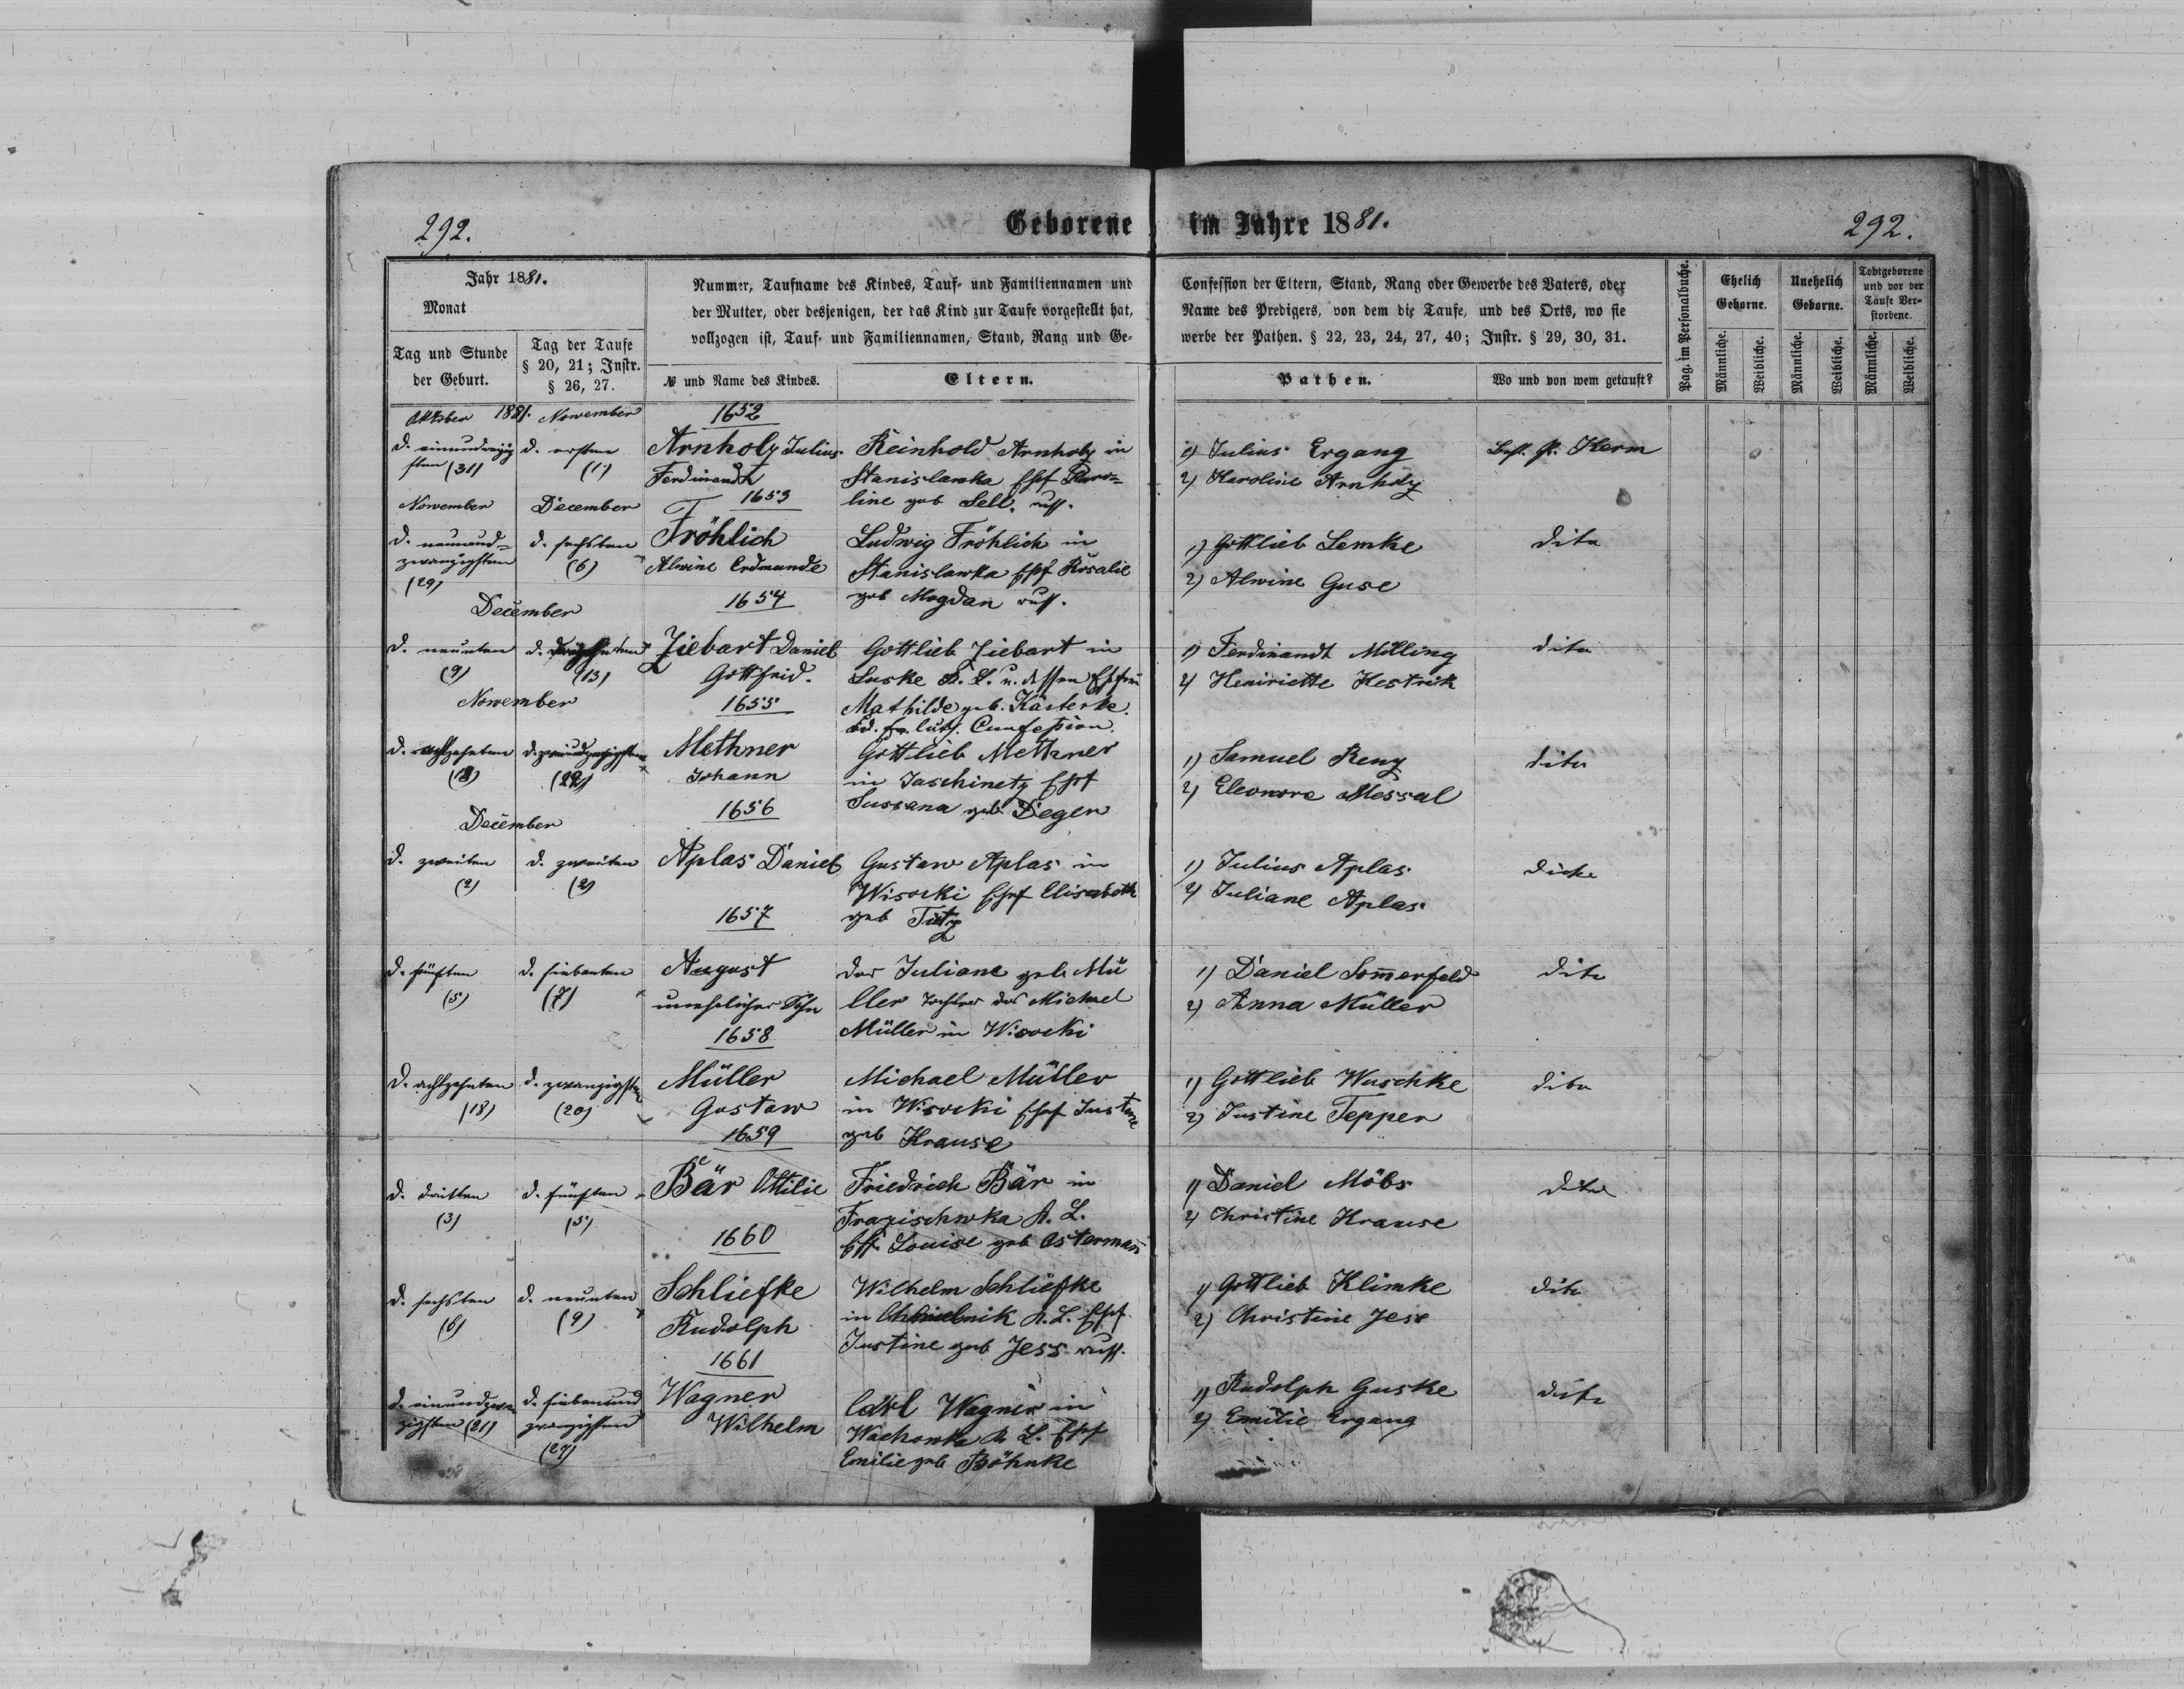 292.
Geborene im Jahre 1881.
292.
Jahr 1881.
Monat
Tag und Stunde
der Geburt.
Tag der Taufe
§ 20, 21; Instr.
§ 26, 27.
Nummer, Taufname des Kindes, Tauf- und Familiennamen und
der Mutter, oder desjenigen, der das Kind zur Taufe vorgestellt hat,
vollzogen ist, Tauf- und Familiennamen, Stand, Rang und Ge-
№ und Name des Kindes.
Eltern.
Confession der Eltern, Stand, Rang oder Gewerbe des Vaters, oder
Name des Predigers, von dem die Taufe, und des Orts, wo sie
werbe der Pathen. § 22, 23, 24, 27, 40; Instr. § 29, 30, 31.
Pathen.
Wo und von wem getauft?
Pag. im Personalbuche.
Ehelich
Geborne.
Unehelich
Geborne.
Todtgeborene
und vor der
Taufe Ver-
storbene.
Männliche.
Weibliche.
Männliche.
Weibliche.
Männliche.
Weibliche.
Oktober 1881. November
1652
d. ersten
(31)
(1)
Arnholz Julius
Ferdinandt
Reinhold Arnholz in
Stanislawka Ehf Karo-
line geb Sell. russ.
1) Julius Ergang
2) Karoline Arnholz
P. Kerm
November
December
1653
d. neunund-
zwanzigsten
(29)
d. sechsten
(6)
Fröhlich
Alwine Erdmunde
Ludwig Fröhlich in
Stanislawka Ehf Rosalie
geb Mogdan russ.
1) Gottlieb Lemke
2) Alwine Guse
dito
December
1654
d. neunten
(9)
d.
(13)
Ziebart Daniel
Gottfried.
Gottlieb Ziebart in
Luske A. L. u. dessen Ehfrau
Mathilde geb. Kästerke.
luth. Confession.
1) Ferdinandt Milling
2) Henriette Kestrik
dito
November
1655
d. achtzehnten
(18)
(22)
Methner
Johann
Gottlieb Methner
in Jaschinetz Ehf
Sussana geb Deger
1) Samuel Renz
2) Eleonore Messal
dito
December
1656
d. zweiten
(2)
d. zweiten
(2)
Aplas Daniel
Gustaw Aplas in
Wisocki Ehf Elisabeth
geb Tietz
1) Julius Aplas
2) Juliane Aplas
dito
1657
d. fünften
(5)
d. siebenten
(7)
August
unehelicher Sohn
der Juliane geb Mü
ller Tochter des Michael
Müller in Wisocki
1) Daniel Sommerfeld
2) Anna Müller
dito
1658
d. achtzehnten
(18)
d. zwanzigsten
(20)
Müller
Gustaw
Michael Müller
in Wisocki Ehf Justine
geb Krause
1) Gottlieb Waschke
2) Justine Tepper
dito
1659
d. dritten
(3)
d. fünften
(5)
Bär Ottilie
Friedrich Bär in
Frazischwka A. L.
Ehf Louise geb Ostermann
1) Daniel Möbs
2) Christine Krause
dito
1660
d. sechsten
(6)
d. neunten
(9)
Schliefke
Rudolph
Wilhelm Schliefke
in Chmielnik A. L. Ehf
Justine geb Jess russ.
1) Gottlieb Klimke
2) Christine Jess
dito
1661
d. einundzwan
zigsten (21)
d. siebenund
zwanzigsten
(27)
Wagner
Wilhelm
Carl Wagner in
A. L. Ehf
Emilie geb Böhnke
1) Rudolph Guske
2) Emilie Ergang
dito